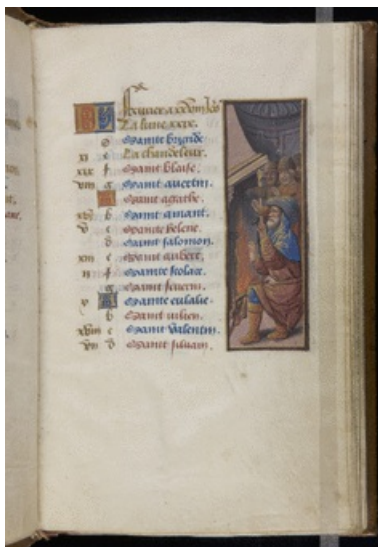 Feurier a xxviii jours
La lune xxix.
d Sainte brigide
xi e La chandeleur.
xix f Saint blaise.
viii g Saint auertin.
A Sainte agathe.
xvi b Saint amant.
v c Sainte helene.
d Saint salomon.
xiii e Saint aubert.
ii f Sainte scolace.
g Saint seuerin.
x A Sainte eulalie.
b Saint iulien.
xviii c Saint valentin.
vii d Saint siluain.